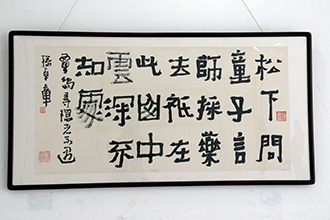 松下問
童子言
師採藥
去祇在
此山中
雲深不
知處
賈島尋隱者不遇